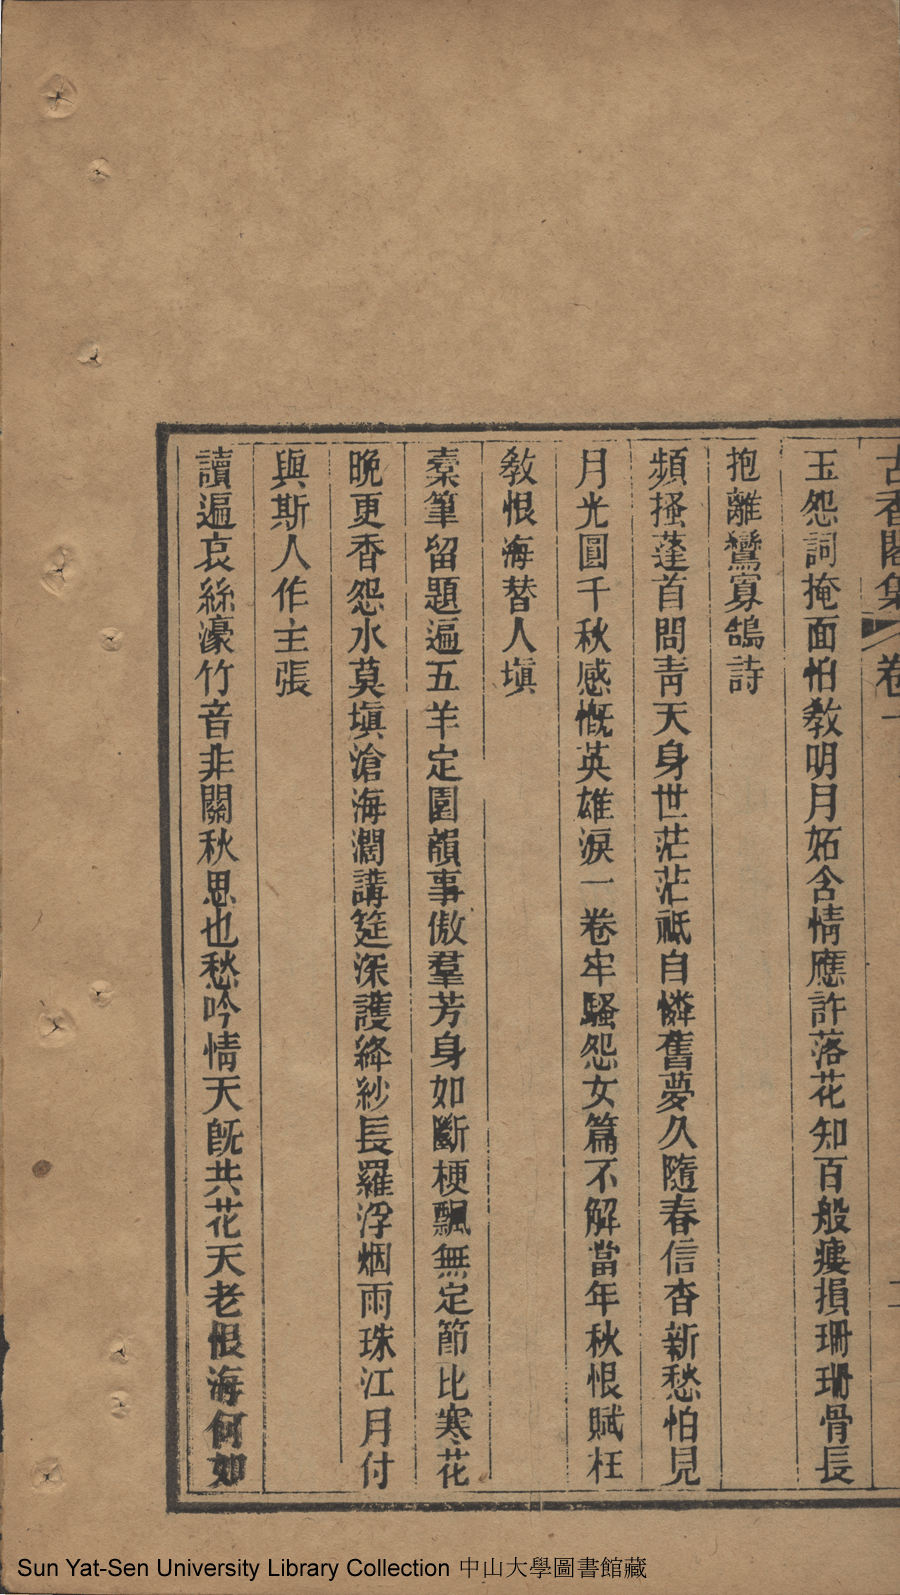 古香閣集 卷一 二
玉怨詞掩面怕敎明月妬含情應許落花知百般瘻損珊珊骨長
抱離鸞寡鵠詩
頻搔蓬首問靑天身世茫茫祗自憐舊夢久隨春信杳新愁怕見
月光圓千秋感慨英雄淚一卷牢騷怨女篇不解當年秋恨賦枉
敎恨海替人塡
秦筆留題遍五羊定園韻事傲羣芳身如斷梗飄無定節比寒花
晩更香怨水莫塡滄海濶講筵深護絳紗長羅浮烟雨珠江月付
與斯人作主張
讀遍哀絲濠竹音非關秋思也愁吟情天旣共花天老恨海何如
Sun Yat-Sen University Library Collection 中山大學圖書館藏